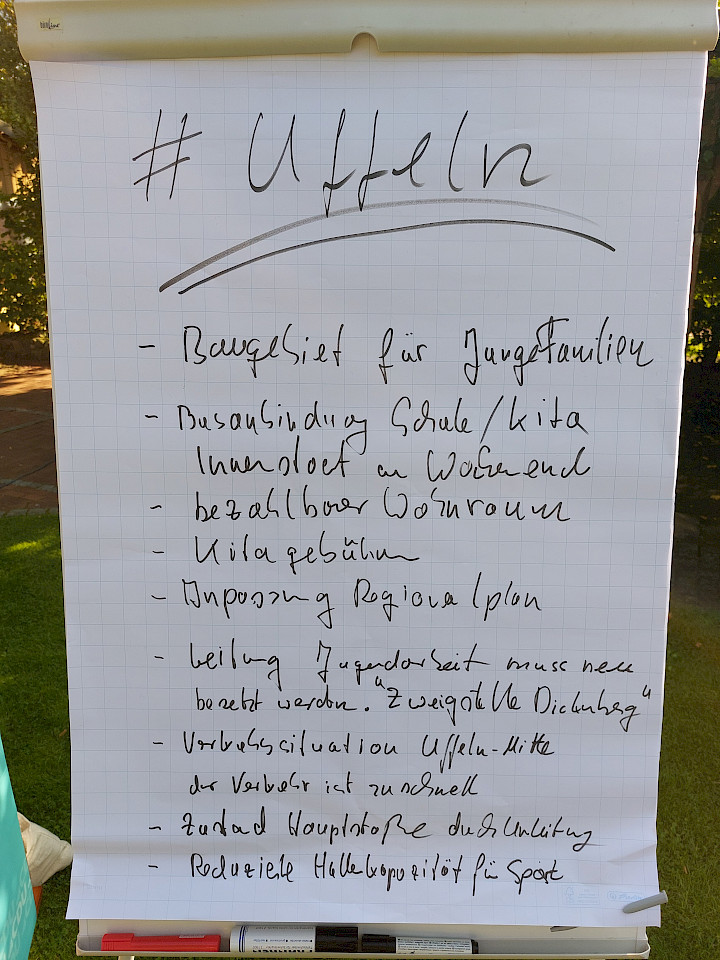 # Uffeln
- Baugebiet für Junge Familien
- Busanbindung Schule/Kita
Innenstadt am Wochenend
- bezahlbarer Wohnraum
- Kitagebühren
- Anpassung Regionalplan
- Leitung Jugendarbeit muss neu
besetzt werden. "Zweigstelle Dickenberg"
- Verkehrssituation Uffeln-Mitte
der Verkehr ist zu schnell
- Zustand Hauptstraße durch Umleitung
- Reduzierte Hallenkapazität für Sport